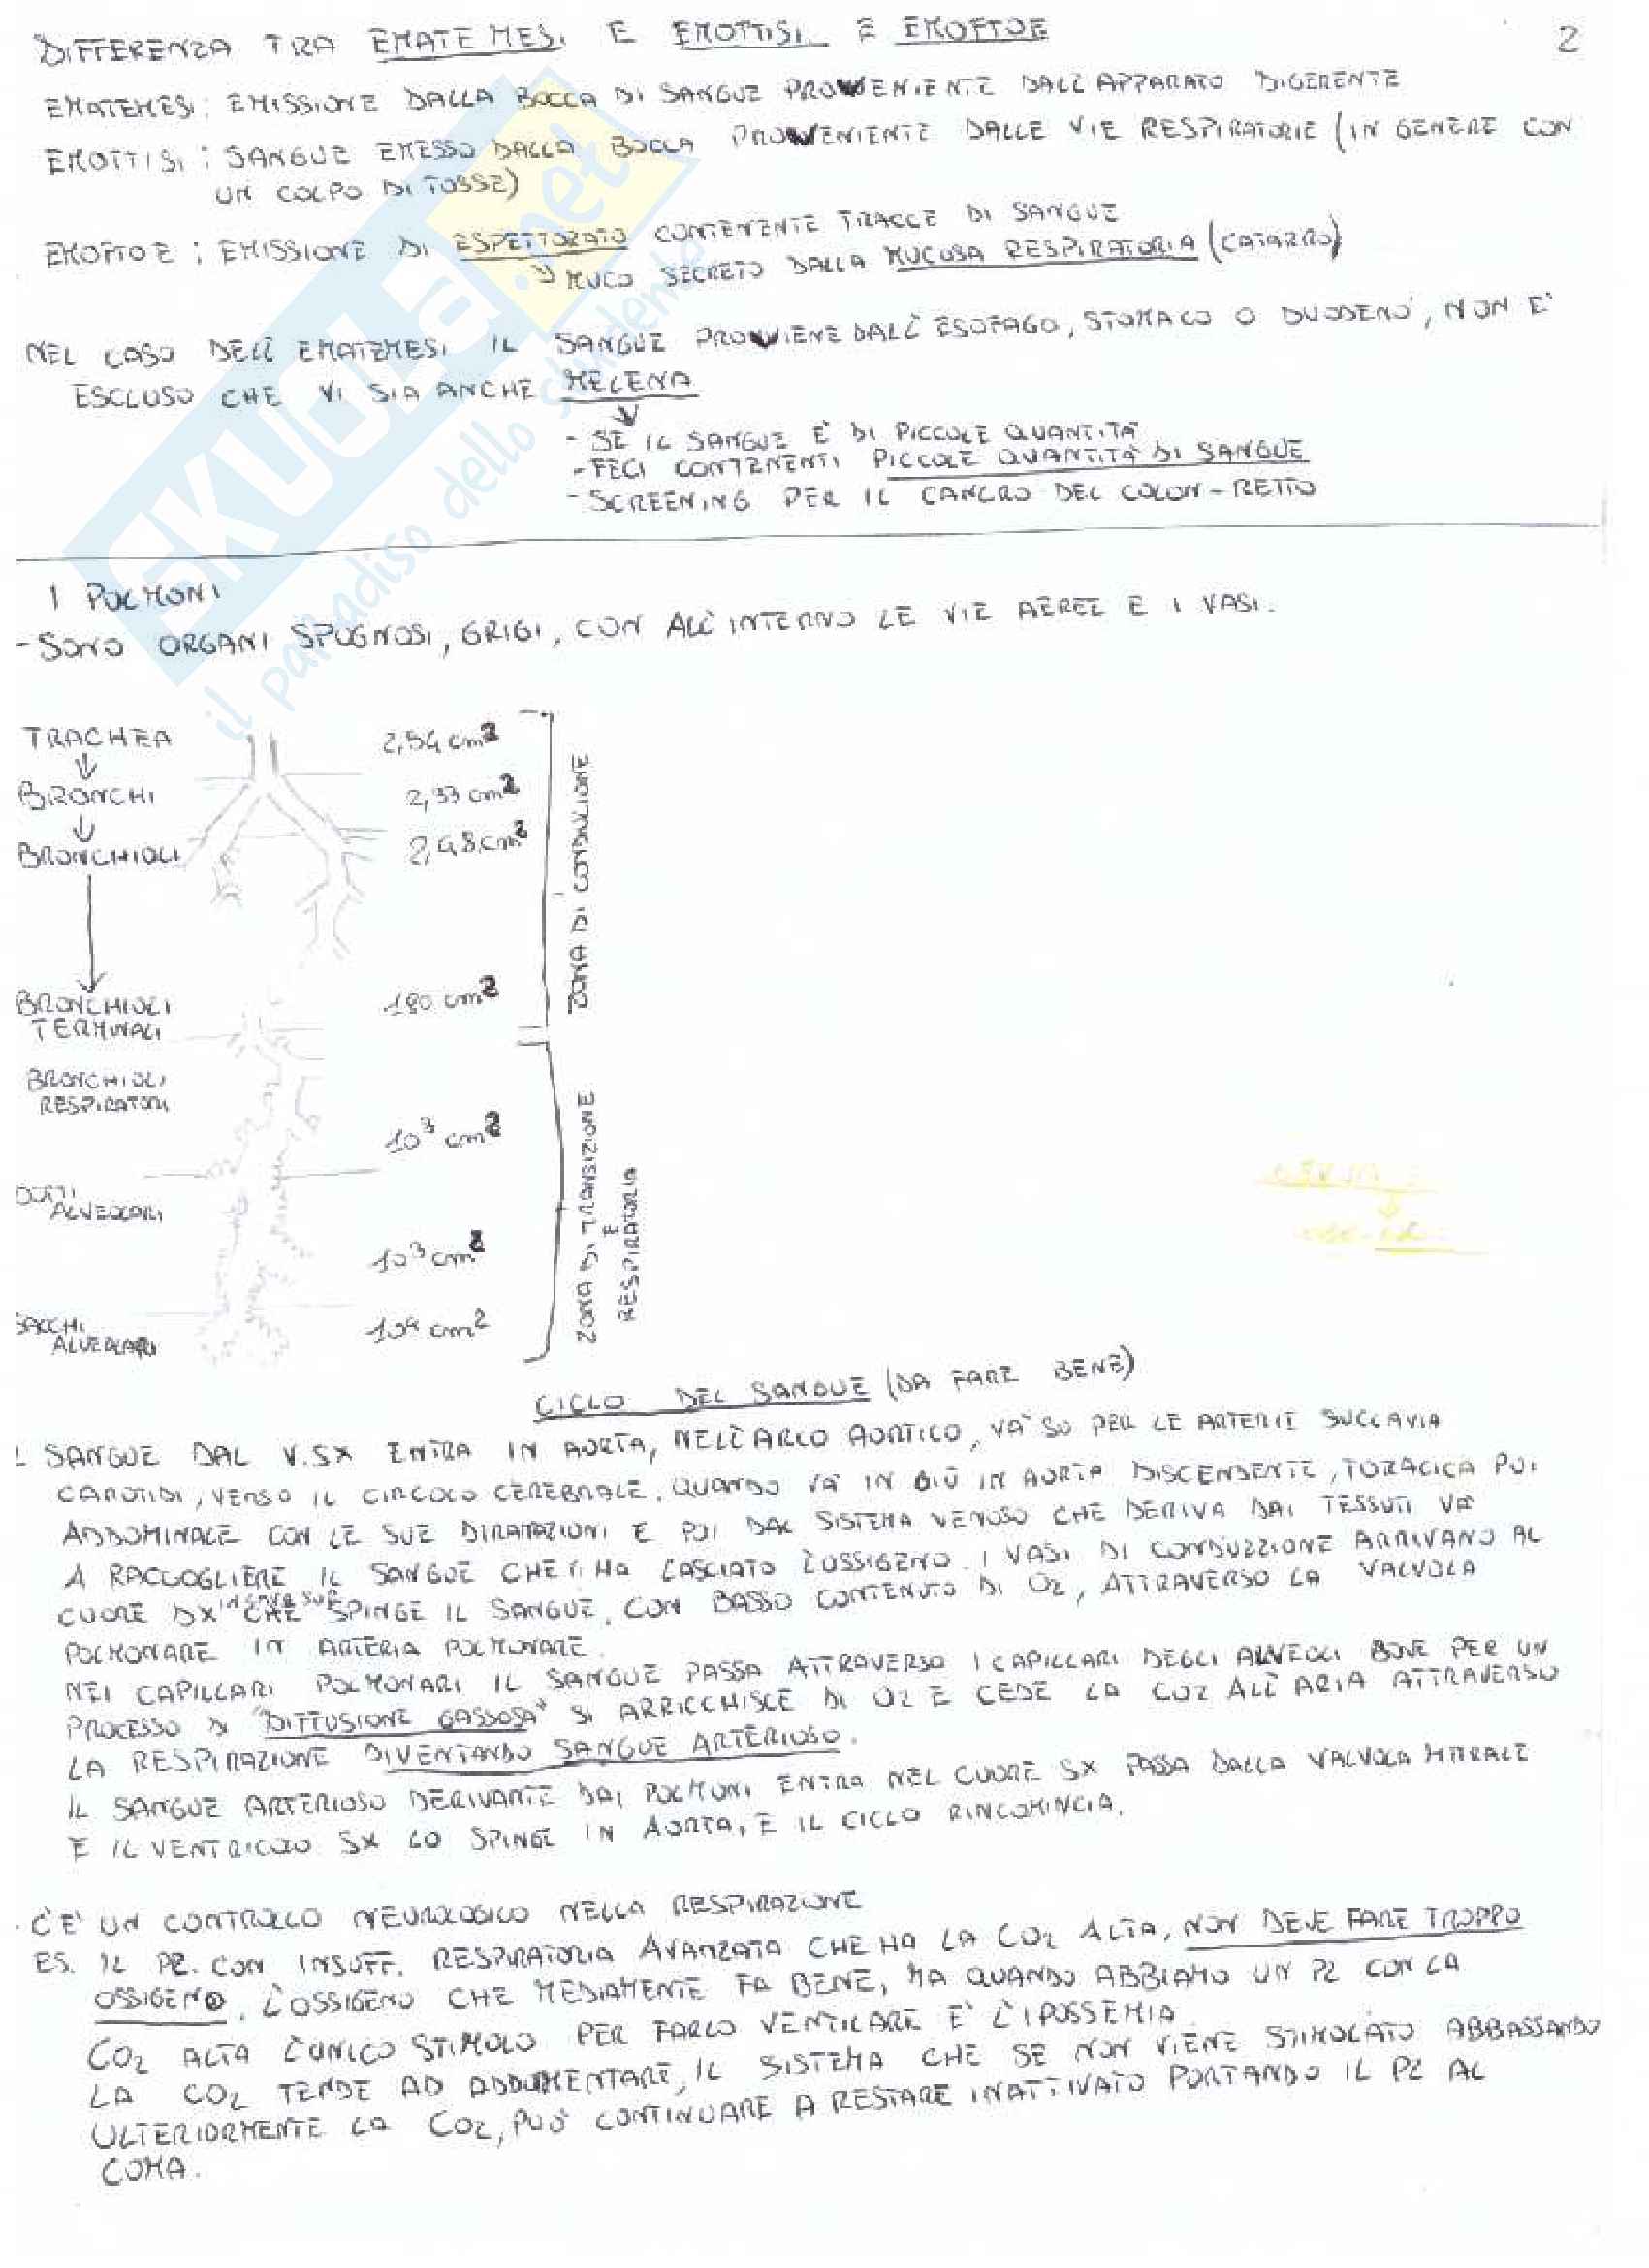 2
DIFFERENZA TRA EMATEMESI E EMOTTISI E EMOFTOE
EMATEMESI: EMISSIONE DALLA BOCCA DI SANGUE PROVENIENTE DALL'APPARATO DIGERENTE
EMOTTISI: SANGUE EMESSO DALLA BOCCA PROVENIENTE DALLE VIE RESPIRATORIE (IN GENERE CON
UN COLPO DI TOSSE)
EMOFTOE: EMISSIONE DI ESPETTORATO CONTENENTE TRACCE DI SANGUE
MUCO SECRETO DALLA MUCOSA RESPIRATORIA (CATARRO)
NEL CASO DELL'EMATEMESI IL SANGUE PROVIENE DALL'ESOFAGO, STOMACO O DUODENO, NON E'
ESCLUSO CHE VI SIA ANCHE MELENA
- SE IL SANGUE E' DI PICCOLE QUANTITA'
- FECI CONTENENTI PICCOLE QUANTITA' DI SANGUE
- SCREENING PER IL CANCRO DEL COLON-RETTO
SKUOLA.net
il paradiso dello studente
I POLMONI
- SONO ORGANI SPUGNOSI, GRIGI, CON ALL'INTERNO LE VIE AEREE E I VASI.
TRACHEA 2,54 cm2
BRONCHI 2,33 cm2
BRONCHIOLI 2,48 cm2
ZONA DI CONDUZIONE
BRONCHIOLI 180 cm2
TERMINALI
BRONCHIOLI
RESPIRATORI
10³ cm2
ZONA DI TRANSIZIONE
E
RESPIRATORIA
DOTTI
ALVEOLARI
10³ cm2
SACCHI 10⁴ cm2
ALVEOLARI
CICLO DEL SANGUE (DA FARE BENE)
IL SANGUE DAL V.SX ENTRA IN AORTA, NELL'ARCO AORTICO, VA' SU PER LE ARTERIE SUCCLAVIA
CAROTIDI, VERSO IL CIRCOLO CEREBRALE, QUANDO VA' IN GIÙ IN AORTA DISCENDENTE, TORACICA POI
ADDOMINALE CON LE SUE DIRAMAZIONI E POI DAL SISTEMA VENOSO CHE DERIVA DAI TESSUTI VA'
A RACCOGLIERE IL SANGUE CHE HA LASCIATO L'OSSIGENO. I VASI DI CONDUZZIONE ARRIVANO AL
CUORE DX CHE SPINGE IL SANGUE, CON BASSO CONTENUTO DI O2, ATTRAVERSO LA VALVOLA
POLMONARE IN ARTERIA POLMONARE.
NEI CAPILLARI POLMONARI IL SANGUE PASSA ATTRAVERSO I CAPILLARI DEGLI ALVEOLI DOVE PER UN
PROCESSO DI "DIFFUSIONE GASSOSA" SI ARRICCHISCE DI O2 E CEDE LA CO2 ALL'ARIA ATTRAVERSO
LA RESPIRAZIONE DIVENTANDO SANGUE ARTERIOSO.
IL SANGUE ARTERIOSO DERIVANTE DAI POLMONI ENTRA NEL CUORE SX PASSA DALLA VALVOLA MITRALE
E IL VENTRICOLO SX LO SPINGE IN AORTA, E IL CICLO RINCOMINCIA.
C'E' UN CONTROLLO NEUROLOGICO NELLA RESPIRAZIONE
ES. IL PZ. CON INSUFF. RESPIRATORIA AVANZATA CHE HA LA CO2 ALTA, NON DEVE FARE TROPPO
OSSIGENO. L'OSSIGENO CHE MEDIAMENTE FA BENE, MA QUANDO ABBIAMO UN PZ CON LA
CO2 ALTA L'UNICO STIMOLO PER FARLO VENTILARE E' L'IPOSSEMIA
LA CO2 TENDE AD ADDUMENTARE, IL SISTEMA CHE SE NON VIENE STIMOLATO ABBASSANDO
ULTERIORMENTE LA CO2, PUO' CONTINUARE A RESTARE INATTIVATO PORTANDO IL PZ AL
COMA.